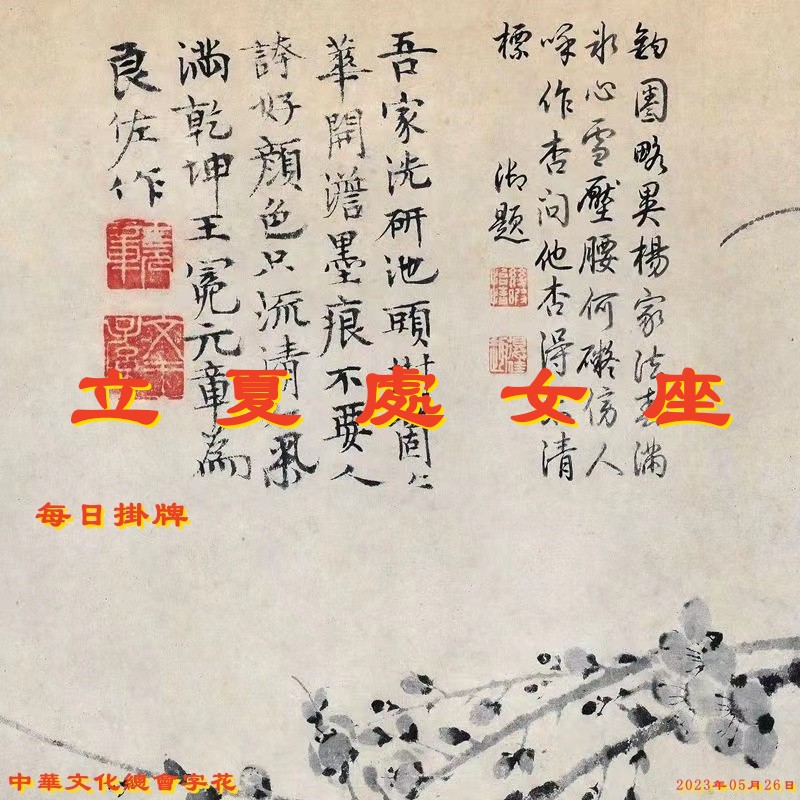 鈎圈略異楊家法春滿
冰心雪壓腰何礙傍人
呼作杏問他杏得清
標
御題
吾家洗研池頭樹箇
華開澹墨痕不要人
誇好顏色只流清氣
滿乾坤王冕元章為
良佐作
立夏處女座
每日掛牌
中華文化總會字花
2023年05月26日